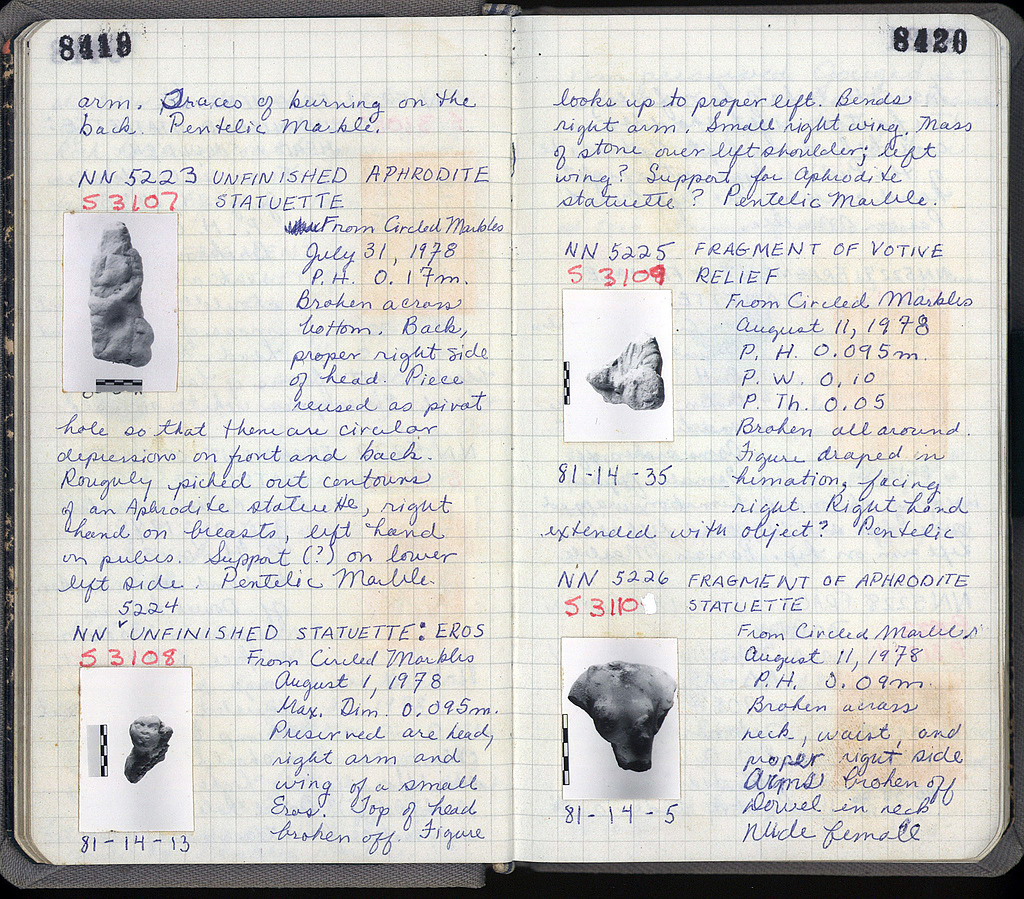 8419
arm. Traces of burning on the
back. Pentelic Marble.
NN 5223 UNFINISHED APHRODITE
S 3107 STATUETTE
From Circled Marbles
July 31, 1978
P.H. 0.17m.
Broken across
bottom. Back,
proper right side
of head. Piece
reused as pivot
hole so that there are circular
depressions on front and back.
Roughly picked out contours
of an Aphrodite statuette, right
hand on breasts, left hand
on pubes. Support (?) on lower
left side. Pentelic Marble.
5224
NN UNFINISHED STATUETTE: EROS
S 3108 From Circled Marbles
August 1, 1978
Max. Dim. 0.095m.
Preserved are head,
right arm and
wing of a small
Eros. Top of head
broken off. Figure
81-14-13
8420
looks up to proper left. Bends
right arm. Small right wing. Mass
of stone over left shoulder; left
wing? Support for Aphrodite
statuette? Pentelic Marble.
NN 5225 FRAGMENT OF VOTIVE
S 3109 RELIEF
From Circled Marbles
August 11, 1978
P. H. 0.095m.
P. W. 0.10
P. Th. 0.05
Broken all around.
Figure draped in
81-14-35
himation, facing
right. Right hand
extended with object? Pentelic
NN 5226 FRAGMENT OF APHRODITE
S 3110 STATUETTE
From Circled Marbles
August 11, 1978
P.H. 0.09m.
Broken across
neck, waist, and
proper right side
Arms broken off
Dowel in neck
Nude female
81-14-5